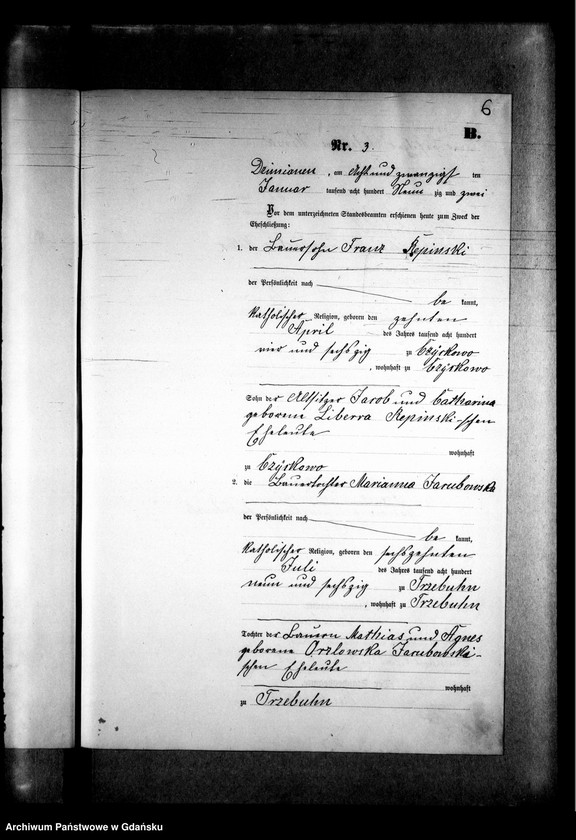 6
B.
Nr. 3.
Dzimianen, am Acht und zwanzigsten
Januar tausend acht hundert Neun zig und zwei
Vor dem unterzeichneten Standesbeamten erschienen heute zum Zweck der
Eheschließung:
1. der Bauersohn Franz Repinski
der Persönlichkeit nach
be kannt,
katholischer Religion, geboren den zehnten
April des Jahres tausend acht hundert
vier und sechszig zu Czyskowo
, wohnhaft zu Czyskowo
Sohn der Altsitzer Jacob und Catharina
geborene Liberra Repinski-schen
Eheleute
wohnhaft
zu Czyskowo
2. die Bauertochter Marianna Jacubowska
der Persönlichkeit nach
be kannt,
katholischer Religion, geboren den sechszehnten
Juli des Jahres tausend acht hundert
neun und sechszig zu Trzebuhn
, wohnhaft zu Trzebuhn
Tochter der Bauern Mathias und Agnes
geborene Orzlowska Jacubowski-
schen Eheleute
wohnhaft
zu Trzebuhn
Archiwum Państwowe w Gdańsku